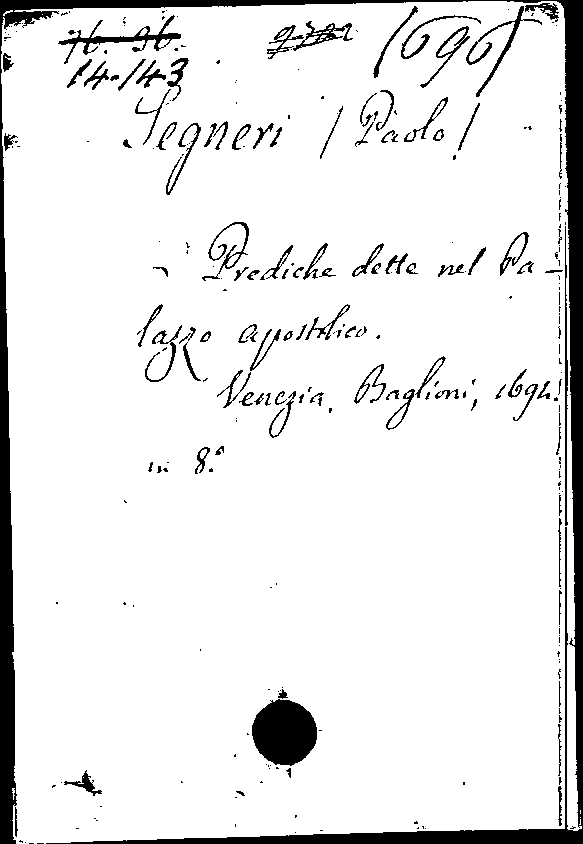 76. 36.
14-143
(696)
Segneri / Paolo /
- Prediche dette nel Pa-
lazzo apostolico.
Venezia, Baglioni, 1694.
in 8.°